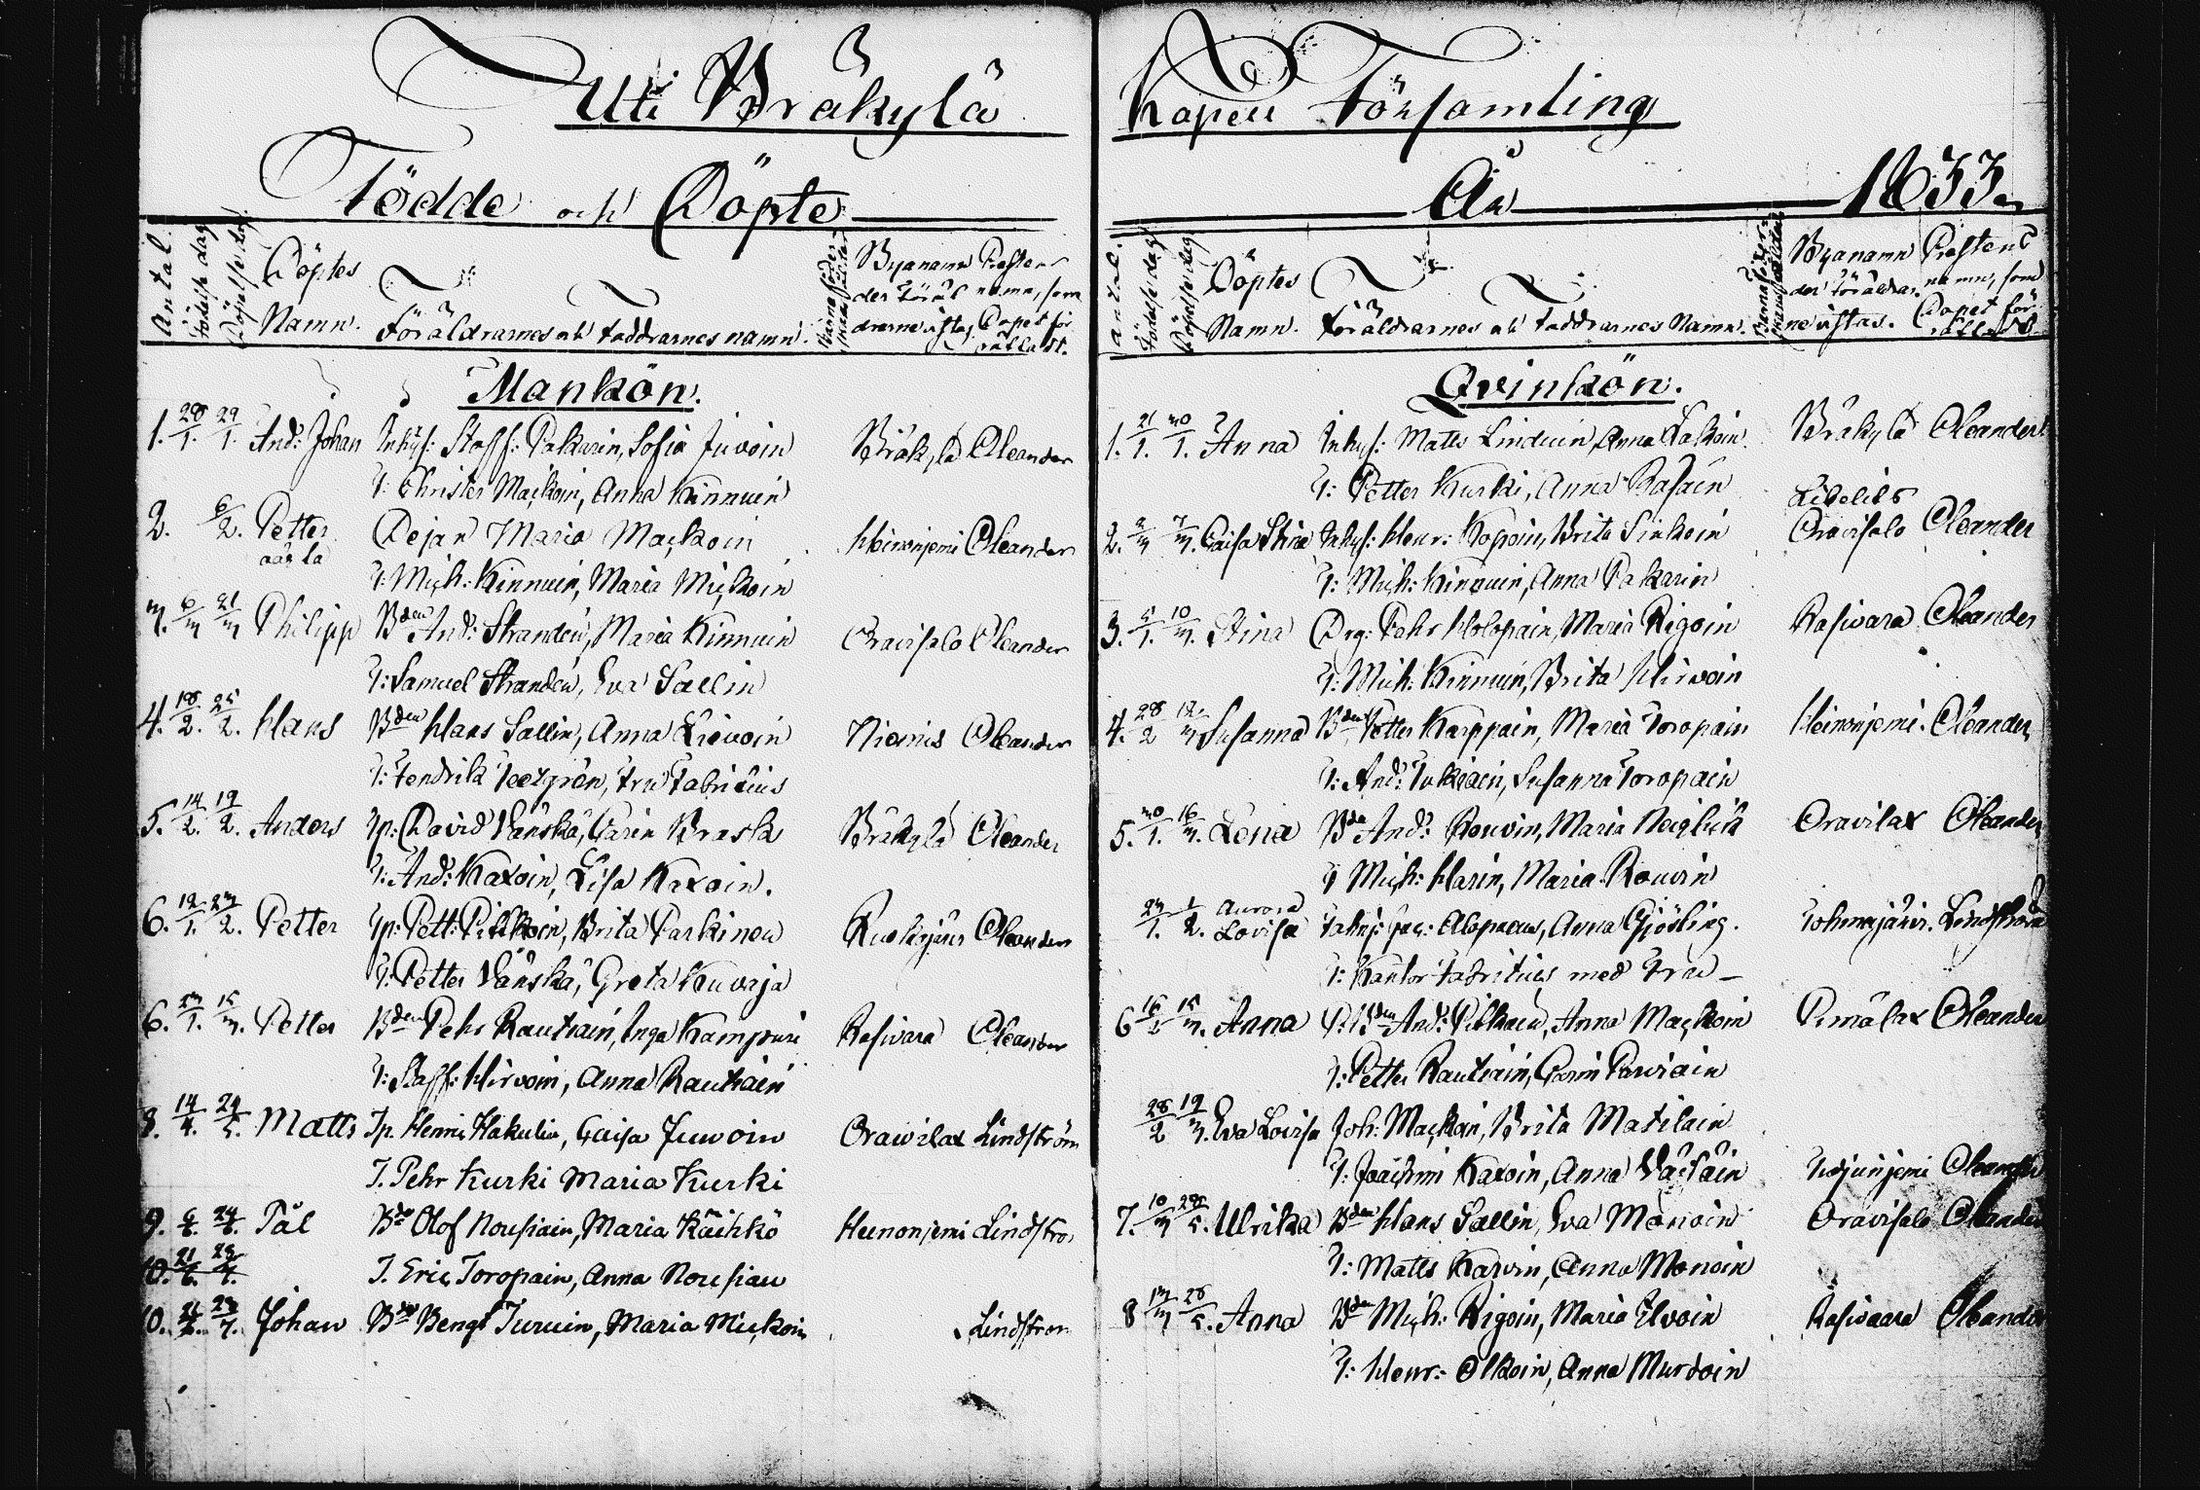 Uti Bräkylä Capell Församling
Födde och Döpte År 1833.
Antal.
Födelse dag
Döpelse dag
Döptes
Namn.
Föräldrarnes och Faddrarnes namn.
Byanamn
der Föräl
drarne vistas
Prestens
namn, som
Döpet för
rättadt.
Mankön.
1. 28/1. 29/1. And: Johan Inhys: Staff: Pakarin, Sofia Juvoin Bräkylä Oleander
T: Christer Maçkoin, Anna Kinnuin
2. 6/2. Petter Pejan Maria Maçkoin Heinonjemi Oleander
oäkta
T: Mich: Kinnuin, Maria Miçkoin
3. 6/3 21/3 Philipp Bden And: Stranden, Maria Kinnuin Oravisalo Oleander
T: Samuel Stranden, Eva Sallin
4. 18/2. 25/2. Hans Bden Hans Sallin, Anna Lievoin Niemis Oleander
T: Fendrik Teetgren, Fru Fabricius
5. 14/2. 19/2. Anders Sp: David Vänskä, Carin Brask Bräkylä Oleander
T: And: Karoin, Lisa Karoin.
6. 12/1. 23/2. Petter Sp: Pett: Pitkoin, Brita Parkinen Ruskejärvi Oleander
T: Petter Vänskä, Greta Kuvaja
6. 23/1. 15/3. Petter Bden Pehr Rautiain, Inga Kampuri Rasivara Oleander
T: Staff: Hirvoin, Anna Rautiain
8. 14/4. 24/5. Matts Sp. Henric Hakulin, Caisa Juvoin Oravilax Lindström
T. Pehr Kurki Maria Kurki
9. 6/6. 24/6. Pål Bde Olof Nousiain, Maria Käihkö Heinonjemi Lindströ
10. 21/6. 23/7.
T. Eric Toropain, Anna Nousiain
10. 21/6. 23/7. Johan Bde Bengt Turuin, Maria Miçkoin Lindström
antal.
Födelse dag
Döpelse dag
Döptes
Namn.
Föräldrarnes och Faddrarnes Namn.
Byanamn
der Föräldrar
ne vistas.
Prestens
namn, som
Döpet för
rättadt.
Qvinkön.
1. 21/1. 30/1. Anna Inhys: Matts Linduin, Anna Laskoin Bräkylä Oleander
T: Petter Kurki, Anna Rasain
Libelits
2. 2/3 7/3. Caisa Stina Inhys: Henr: Kopoin, Brita Sinkoin Oravisalo Oleander
T: Mich: Kinnuin, Anna Pakarin
3. 5/1. 10/3. Stina Drg: Pehr Holopain, Maria Rigoin Rasivara Oleander
T: Mich: Kinnuin, Brita Hirvoin
4. 28/2 12/3 Susanna Bden Petter Karppain, Maria Toropain Heinonjemi. Oleander
T: And: Tukiain, Susanna Toropain
5. 30/1. 16/3. Lena Bde And: Rouvin, Maria Neiglick Oravilax Oleander
T Mich: Harin, Maria Rouvin
23/1. 1/2. Aurora
Lovisa Inhys: Jac: Alopaeus, Anna Gjösling. Tohmajärvi. Lindström
T: Kantor Fabritius med Fru —
6 16/2 15/3. Anna Bden And: Pitkain, Anna Maçkoin Pimälax Oleander
T: Petter Rautiain, Carin Parviain
28/2 19/3. Eva Lovisa Joh: Maçkoin, Brita Matilain
T: Joachim Karoin, Anna Väisäin Oleander
7. 10/3 28/5. Ulrika Bden Hans Sallin, Eva Manoin Oravisalo Oleander
T: Matts Karvin, Anna Monoin
8 13/3 28/5. Anna Bde Mich: Rigoin, Maria Elvoin Rasivaara Oleander
T: Henr: Olkoin, Anna Murtoin